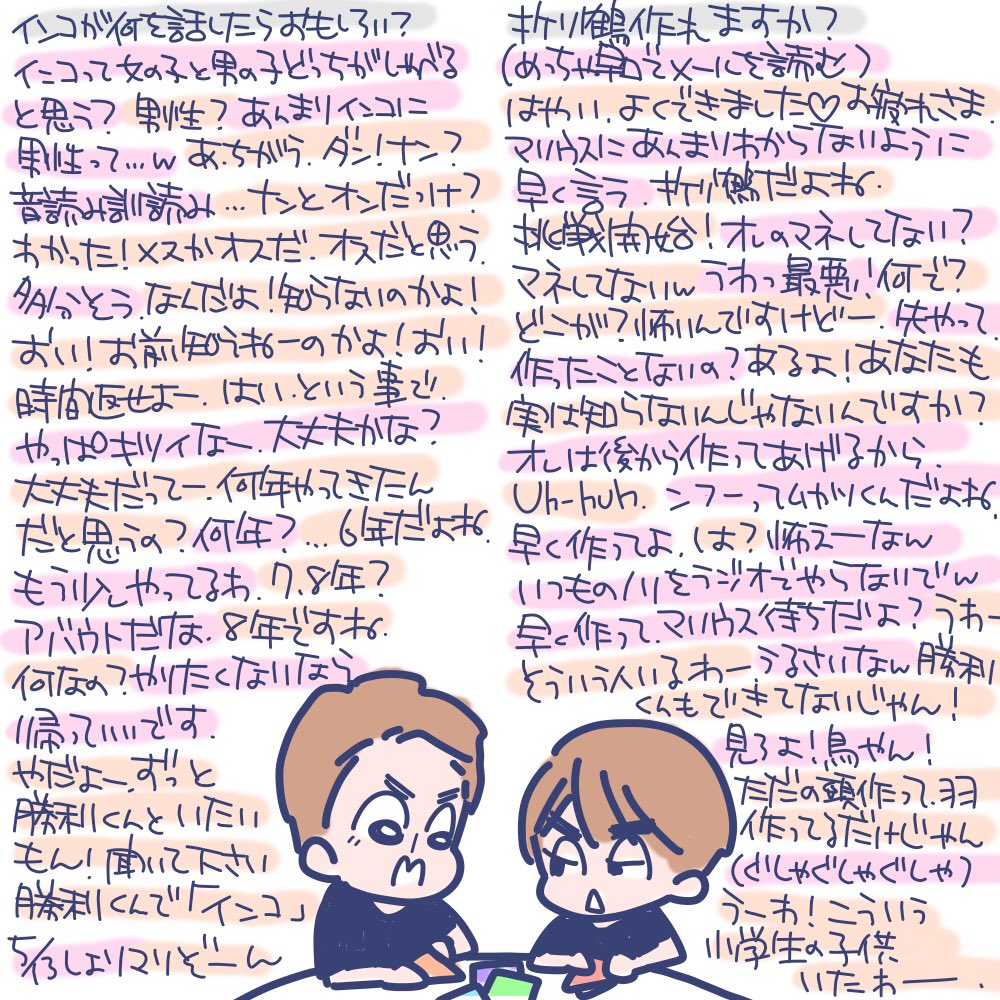 インコが何を話したらおもしろい?
インコって女の子と男の子どっちがしゃべる
と思う? 男性? あんまりインコに
男性って…w あ、ちがう。ダン!ナン?
音読み訓読み…ナンとオンだっけ?
わかった!メスかオスだ。オスだと思う。
多分そう。なんだよ!知らないのかよ!
おい!お前知らねーのかよ!おい!
時間返せよー。はい。という事で。
やっぱりキツイなー。大丈夫かな?
大丈夫だってー。何年やってきたん
だと思うの?何年?…6年だよね。
もう少しやってるわ。7、8年?
アバウトだな。8年ですね。
何なの?やりたくないなら
帰っていいです。
やだよー。ずっと
勝利くんといたい
もん!聞いて下さい
勝利くんで「インコ」
5/13しょりマリどーん
折り鶴作れますか?
(めっちゃ早口でメールを読む)
はやい。よくできました♡お疲れさま。
マリウスにあんまりわからないように
早く言う。折り鶴だよね。
挑戦開始!オレのマネしてない?
マネしてないw うわっ最悪!何で?
どこが?怖いんですけどー。失やって
作ったことないの?あるよ!あなたも
実は知らないんじゃないんですか?
オレは後から作ってあげるから。
Uh-huh. シフーってムがりくんだよね。
早く作ってよ。は?怖えーなん
いつものノリをラジオでやらないでw
早く作って。マリウス待ちだよ?うわー
そういう人いるわー。うるさいなw 勝利
くんもできてないじゃん!
見ろよ!鳥やん!
ただの頭作って、羽
作ってるだけじゃん
(ぐしゃぐしゃぐしゃ)
うーわ!こういう
小学生の子供
いたわー。